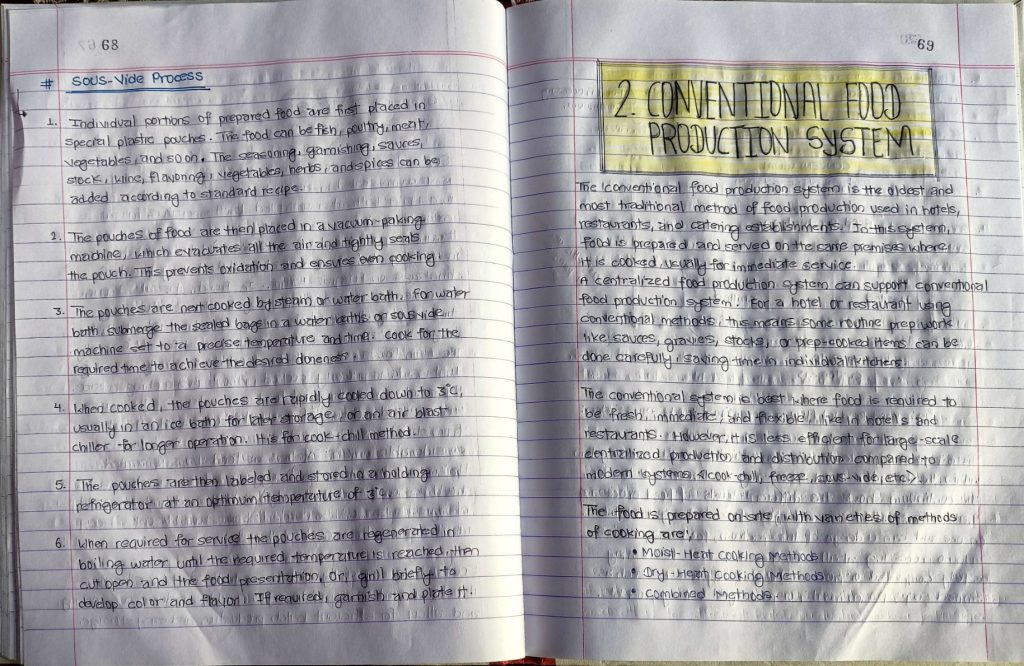 68
# Sous-Vide Process
1. Individual portions of prepared food are first placed in
special plastic pouches. The food can be fish, poultry, meat,
vegetables, and so on. The seasoning, garnishing, sauces,
stock, wine, flavoring, vegetables, herbs, and spices can be
added according to standard recipe.
2. The pouches of food are then placed in a vacuum-paking
machine, which evacuates all the air and tightly seals
the pouch. This prevents oxidation and ensures even cooking.
3. The pouches are next cooked by steam or water bath. For water
bath, submerge the sealed bags in a water baths or sous-vide
machine set to a precise temperature and time. Cook for the
required time to achieve the desired doneness.
4. When cooked, the pouches are rapidly cooled down to 3°C,
usually in an ice bath for later storage, or an air blast
chiller for longer operation. It is for cook-chill method.
5. The pouches are then labeled and stored in a holding
refrigerator at an optimum temperature of 3°C.
6. When required for service the pouches are regenerated in
boiling water until the required temperature is reached, then
cut open and the food presentation, or, grill briefly to
develop color and flavor. If required, garnish and plate it.
69
2. CONVENTIONAL FOOD
PRODUCTION SYSTEM
The conventional food production system is the oldest and
most traditional method of food production used in hotels,
restaurants, and catering establishments. In this system,
food is prepared and served on the same premises where
it is cooked, usually for immediate service.
A centralized food production system can support conventional
food production system. For a hotel or restaurant using
conventional methods, this means some routine prep work
like sauces, gravies, stocks, or prep-cooked items can be
done carefully, saving time in individual kitchens.
The conventional system is best where food is required to
be fresh, immediate, and flexible, like in hotels and
restaurants. However, it is less efficient for large-scale
centralized production and distribution compared to
modern systems (cook-chill, freeze, sous-vide, etc).
The food is prepared on-site, with varieties of methods
of cooking are:
• Moist-Heat Cooking Methods
• Dry-Heat Cooking Methods
• Combined Methods.